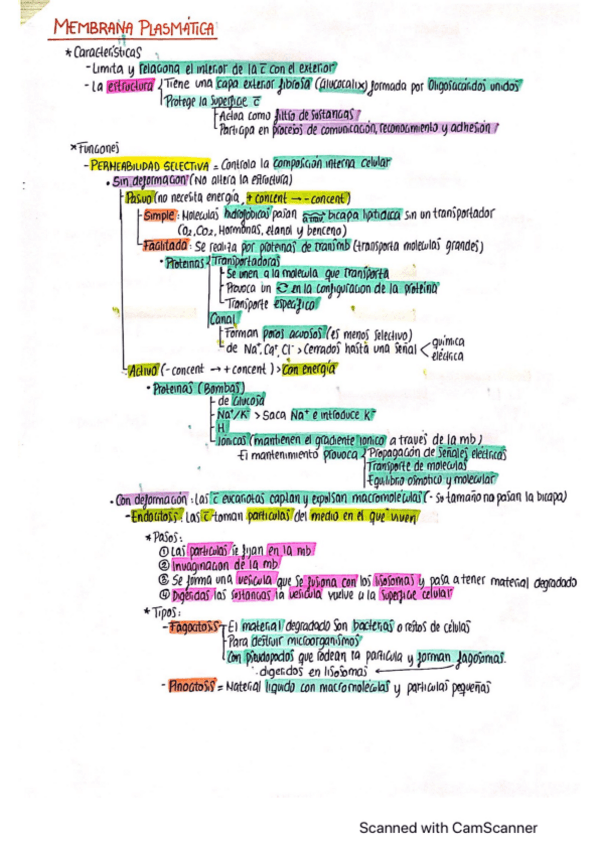 MEMBRANA PLASMÁTICA
* Características
- Limita y relaciona el interior de la c̄ con el exterior
- La estructura Tiene una capa exterior fibrosa (Glucocalix) formada por Oligosacáridos unidos
Protege la superficie c̄
Actúa como filtro de sustancias
Participa en procesos de comunicación, reconocimiento y adhesión
* Funciones
- PERMEABILIDAD SELECTIVA = Controla la composición interna celular
• Sin deformacion (No altera la estructura)
- Pasivo (no necesita energía, + concent → - concent)
- Simple: Moleculas hidrofóbicas pasan bicapa lipidica sin un transportador
(O₂, CO₂, Hormonas, etanol y benceno)
- Facilitada: Se realiza por proteinas de transmb (transporta moleculas grandes)
• Proteinas Transportadoras
Se unen a la molecula que transporta
Provoca un en la configuración de la proteina
Transporte específico
Canal
Forman poros acuosos (es menos selectivo)
de Na⁺, Ca⁺, Cl⁻ > Cerrados hasta una señal < química
eléctrica
- Activo (- concent → + concent) > Con energía
• Proteinas (Bombas)
de Glucosa
Na⁺/K⁺ > Saca Na⁺ e introduce K⁺
H
Iónicas (mantienen el gradiente ionico a través de la mb)
El mantenimiento provoca Propagación de señales electricas
Transporte de moleculas
Equilibrio osmotico y molecular
• Con deformación: Las c̄ eucariotas captan y expulsan macromoleculas (· Su tamaño no pasan la bicapa)
- Endocitosis: Las c̄ toman particulas del medio en el que viven
* Pasos:
① Las particulas se fijan en la mb
② Invaginacion de la mb
③ Se forma una vesicula que se fusiona con los lisosomas y pasa a tener material degradado
④ Digeridas las sustancias la vesicula vuelve a la superficie celular
* Tipos:
- Fagocitosis El material degradado son bacterias o restos de celulas
Para destruir microorganismos
Con pseudopodos que rodean la particula y forman fagosomas.
digeridos en lisosomas ←
- Pinocitosis = Material liquido con macromoleculas y particulas pequeñas
Scanned with CamScanner